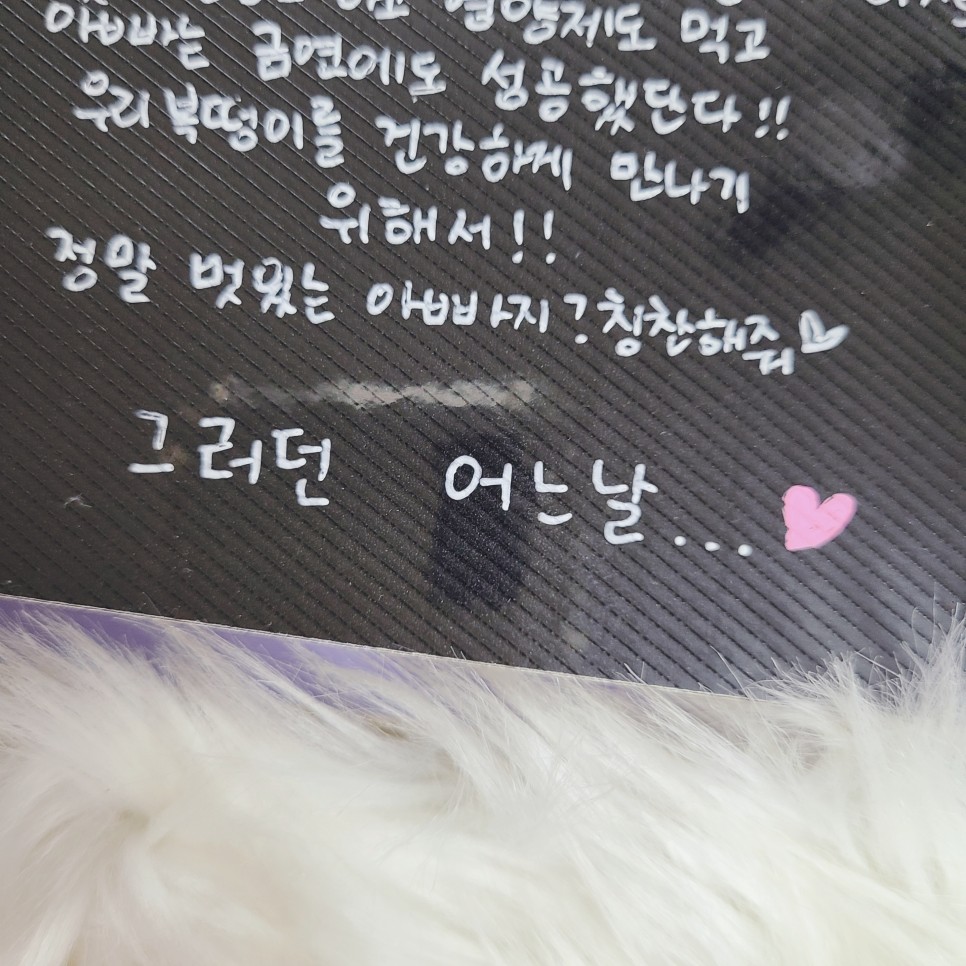 영양제도 먹고
아빠는 금연에도 성공했단다!!
우리 복떵이를 건강하게 만나기
위해서!!
정말 멋있는 아빠지? 칭찬해줘
그러던 어느날...